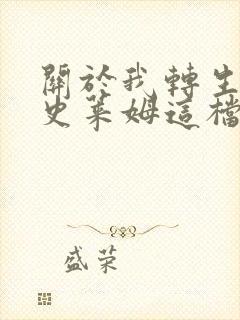 關於我轉生
史萊姆這檔
盛荣